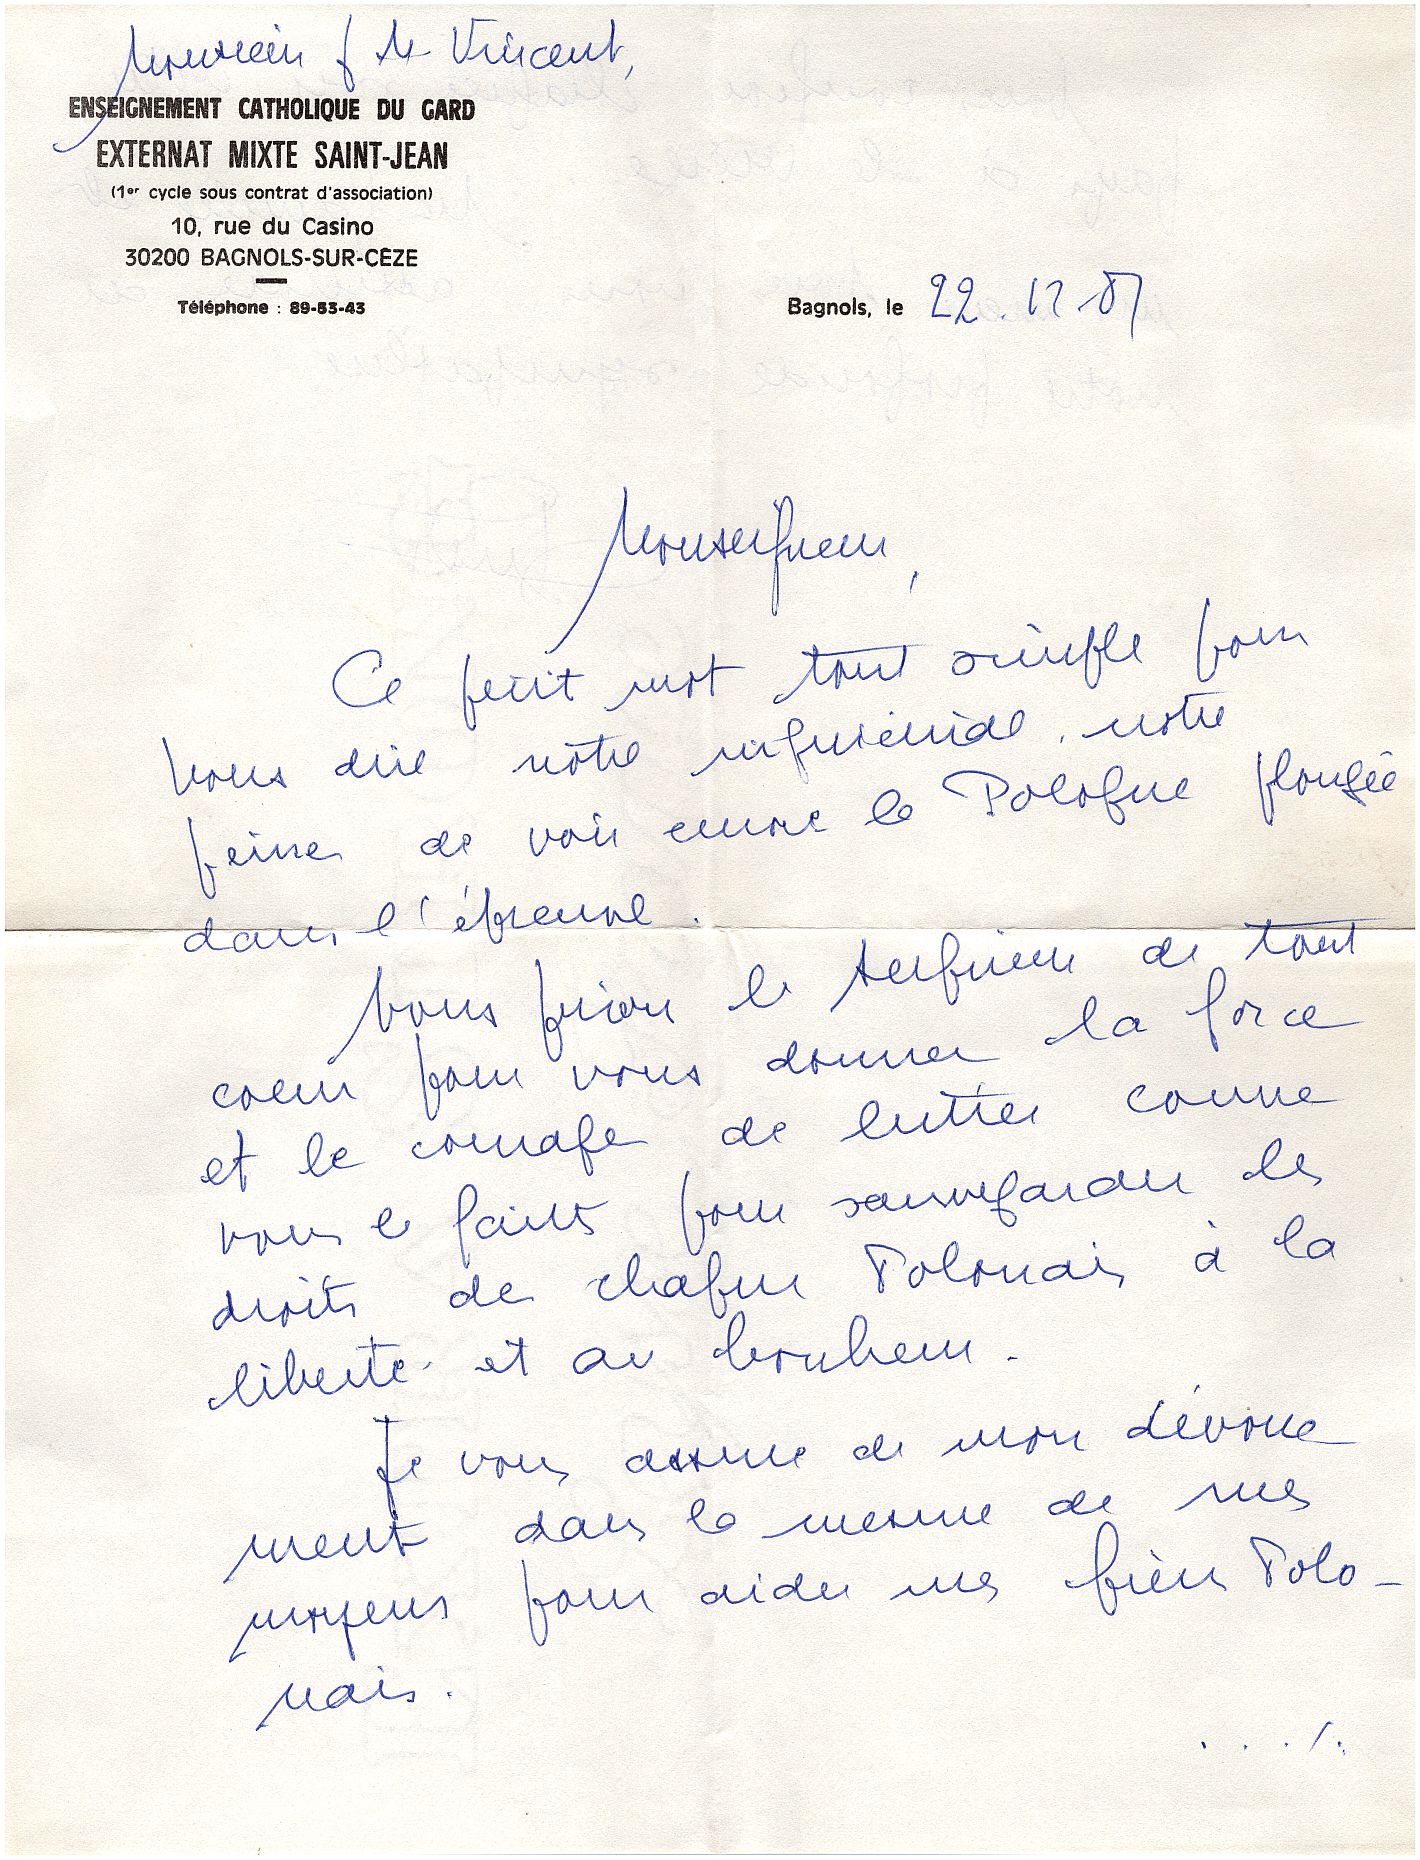 Monsieur J M Vincent,
ENSEIGNEMENT CATHOLIQUE DU GARD
EXTERNAT MIXTE SAINT-JEAN
(1er cycle sous contrat d'association)
10, rue du Casino
30200 BAGNOLS-SUR-CÈZE
Téléphone : 89-53-43
Bagnols, le 22.12.81
Monseigneur,
Ce petit mot tout simple pour
vous dire notre inquiétude, notre
peine de voir encore la Pologne plongée
dans l'épreuve.
Nous prions le Seigneur de tout
coeur pour vous donner la force
et le courage de lutter comme
vous le faites pour sauvegarder les
droits de chaque Polonais à la
liberté et au bonheur.
Je vous assure de mon dévoue
ment dans la mesure de mes
moyens pour aider mes frères Polo-
nais.
. . . /.